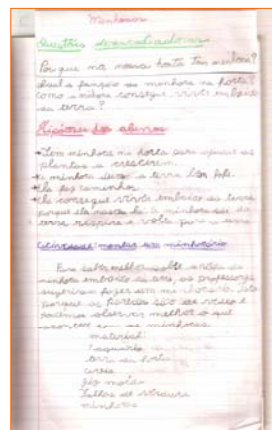 Minhocas
Questões desencadeadoras
Por que na nossa horta tem minhoca?
Qual a função da minhoca na horta?
Como a minhoca consegue viver embaixo
da terra?
Hipóteses dos alunos
Tem minhoca na horta para ajudar as
plantas a crescerem.
A minhoca deixa a terra fofa.
Ela faz caminhos.
Ela consegue viver embaixo da terra
porque ela nasceu lá. A minhoca sai da
terra respira e volta para a terra
montar um minhocário
Era saber melhor sobre a vida da
minhoca embaixo da terra, as professoras
sugeriram fazer um minhocário. Isto
porque as paredes são de vidro e
podemos observar melhor o que
acontece com as minhocas.
material:
1 aquário
terra da horta
areia
pó moído
folhas de verdura
minhocas